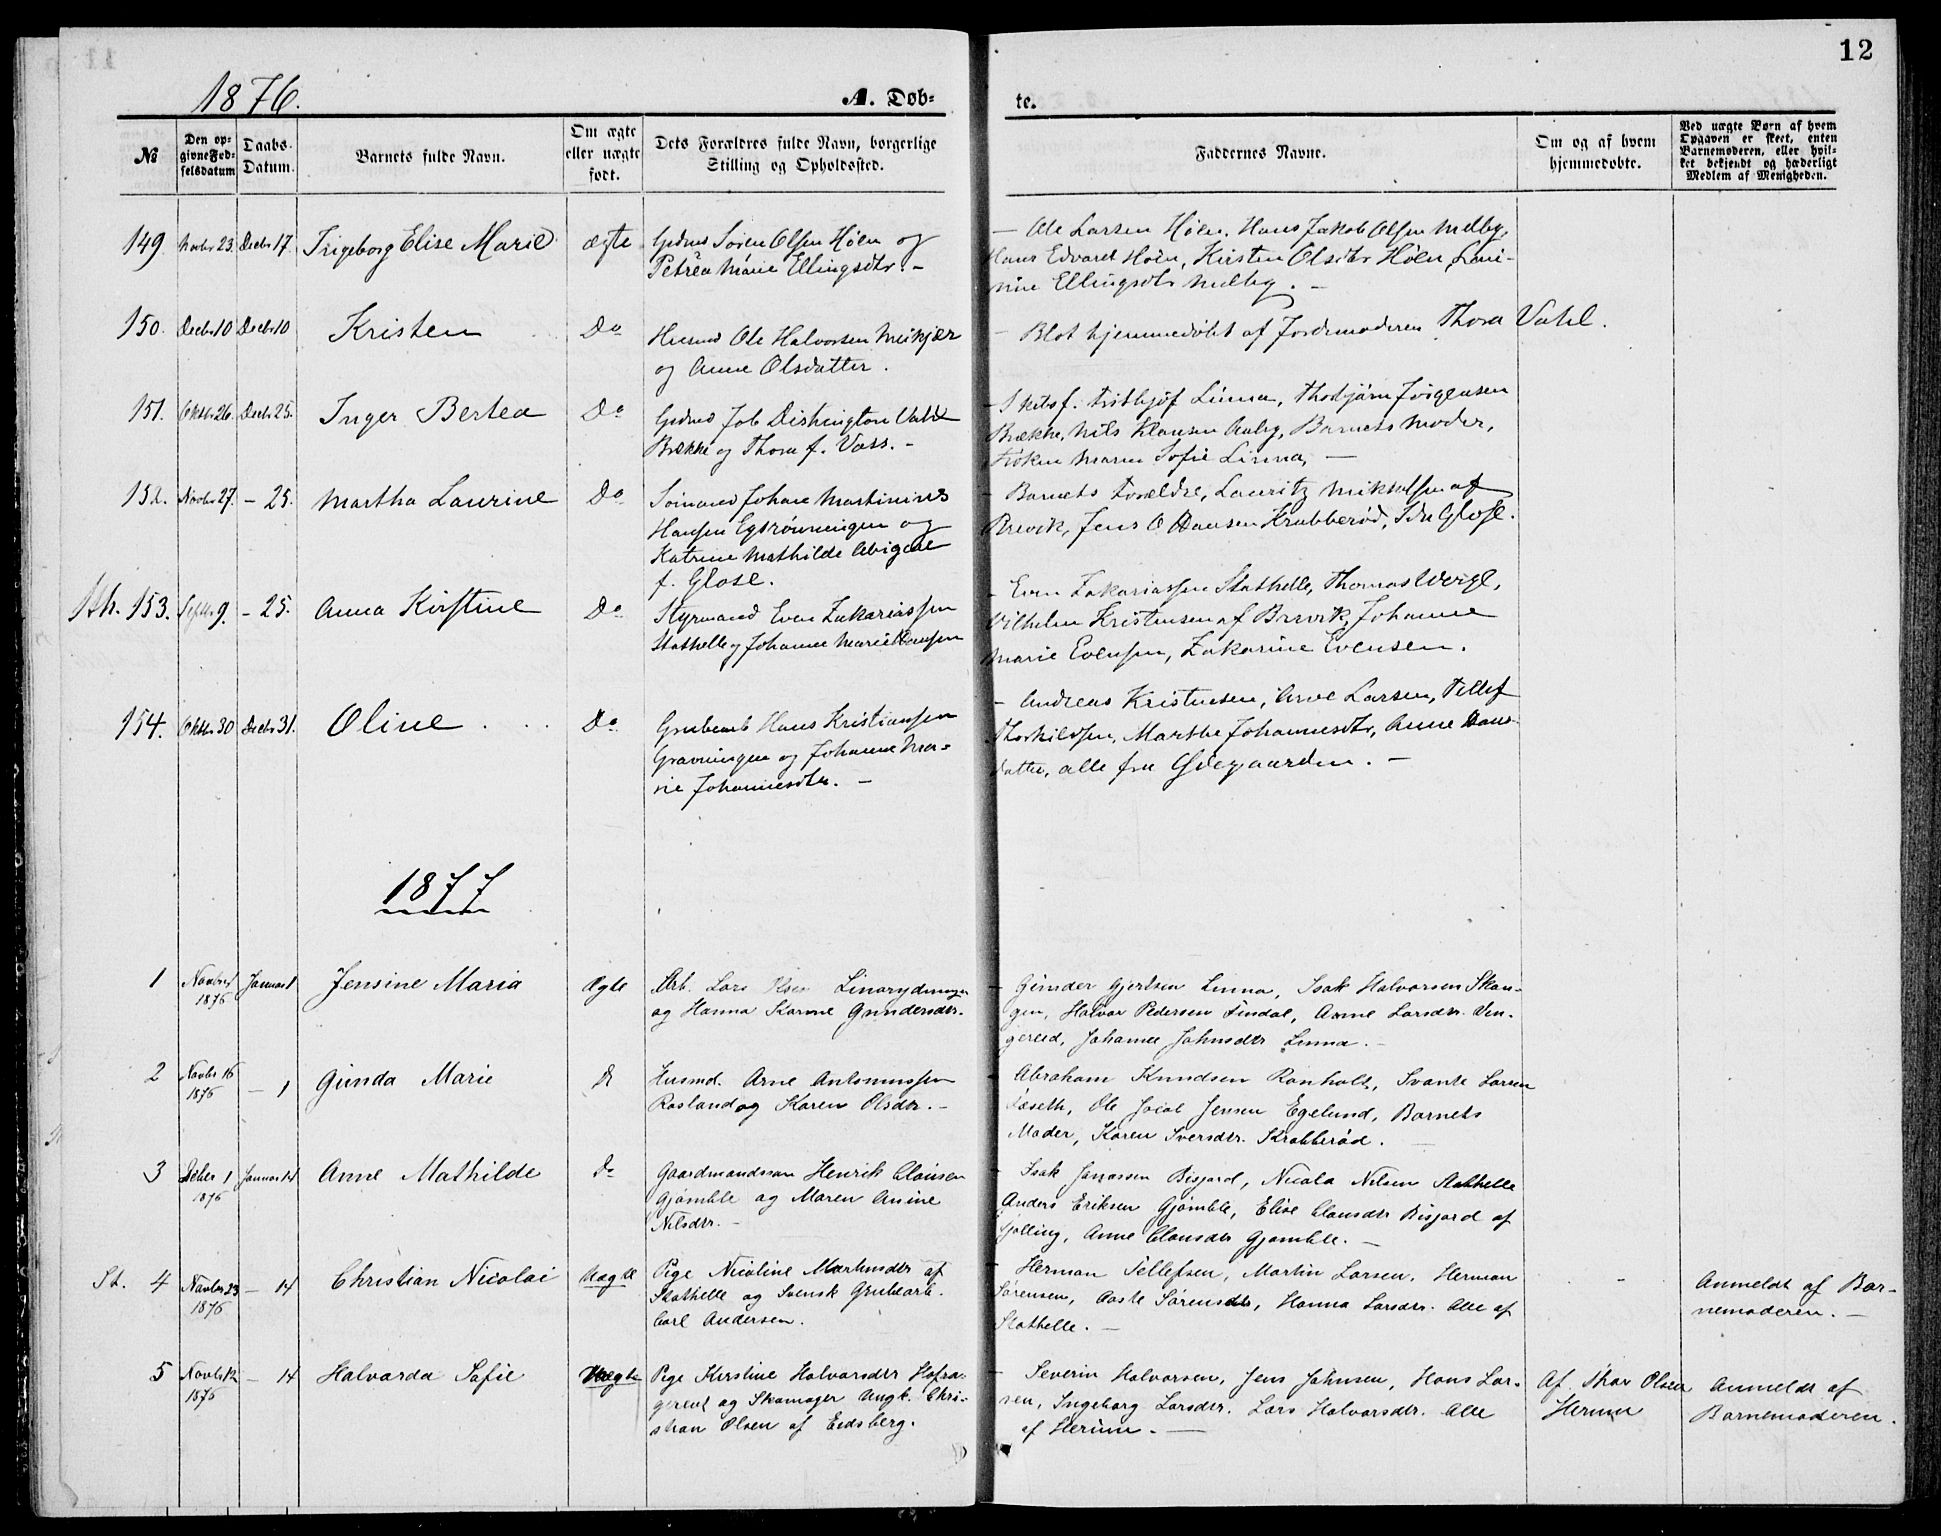 12
1876.
A. Døb-
te.
No
Den op-
givne Fød-
selsdatum
Daabs-
Datum.
Barnets fulde Navn.
Om ægte
eller uægte
født.
Dets Forældres fulde Navn, borgerlige
Stilling og Opholdssted.
Faddernes Navne.
Om og af hvem
hjemmedøbte.
Ved uægte Børn af hvem
Opgaven er skeet, enten
Barnemoderen, eller hvil-
ket bekjendt og hæderligt
Medlem af Menigheden.
149. Novbr 23. Decbr 17. Ingeborg Elise Marie ægte
Grdmd Søren Olsen Høen og
Petrea Marie Ellingsdtr. -
- Ole Larsen Høen. Hans Jakob Olsen Melby,
Hans Edvard Høen, Kirsten Olsdtr Høen, Lovi-
nie Ellingsdtr Melby. -
150. Decbr 10 Decbr 10 Kristen Do
Husmd Ole Halvorsen Meikjær
og Anne Olsdatter.
- Blot hjemmedøbt af Jordmoderen Thora Vahl.
151. Oktbr 26. Decbr 25. Inger Bertea Do
Grdmd Job Dishington Vahl
Brække og Thora f. Voss. -
- Skibsf. Frithjof Linna, Thorbjørn Jørgensen
Brække, Nils Klausen Aaby, Barnets Moder,
Frøken Maren Sofie Linna, -
152. Novbr 27. - 25. Martha Laurine Do
Sømand Johan Martinius
Hansen Egsrønningen og
Katrine Mathilde Abigael
f. Glose.
- Barnets Forældre, Lauritz Mikkelsen af
Brevik, Jens O Hansen Krabberød, Glose.
Sth. 153. Septbr 9. - 25. Anna Kirstine Do
Styrmand Even Zakariassen
Stathelle og Johanne Marie Hansen
- Even Zakariassen Stathelle, Thomas
Vilhelm Kristensen af Brevik, Johanne
Marie Evensen, Zakarine Evensen.
154. Oktbr 30 Decbr 31. Oline Do
Grubearb Hans Kristiansen
Gravningen og Johanne Ma-
rie Johannesdtr. -
- Andreas Kristensen, Arve Larsen, Tellef
Thorkildsen, Marthe Johannesdtr, Anne Hans-
datter, alle fra Ødegaarden. -
1877
1 Novbr 1876 Januar 1 Jensine Maria Ægte
Arb. Lars Linarydningen
og Hanna Karine Gundersdtr.
- Gunder Gjertsen Linna, Isak Halvorsen Skau-
gen, Halvor Pedersen Findal, Anne Larsdtr. Vin-
gereid, Johanne Johnsdtr Linna. -
2 Novbr 16 1876 - 1 Gunda Marie do
Husmd. Arne Antonussen
Rosland og Karen Olsdtr. -
- Abraham Knudsen Ronholt, Svante Larsen
Læseth, Ole Jacob Jensen Egelund, Barnets
Moder, Karen Sversdtr. Krabberød. -
3 Decbr 1 1876 Januar 14 Anne Mathilde do
Gaardmandssøn Henrik Clausen
Gjømble og Maren Anine
Nilsdtr. -
- Isak Bisjord, Nicola Nilsen Stathelle
Anders Eriksen Gjømble, Elise Clausdtr Bisjord af
Tjølling, Anne Clausdtr Gjømble. -
St. 4 Novbr 23 1876 - 14 Christian Nicolai Uægte
Pige Nicoline Martinsdtr af
Stathelle og Svensk Grubearb.
Carl Andersen.
- Herman Tellefsen, Martin Larsen, Herman
Sørensen, Aaste Sørensdtr, Hanna Larsdtr. Alle af
Stathelle. -
Anmeldt af Bar-
nemoderen. -
5 Novbr 12 1876 - 14 Halvarda Sofie Uægte
Pige Kirstine Halvorsdtr
og Skomager Ungk. Chri-
stian Olsen af Eidsberg.
- Severin Halvorsen, Jens Johnsen, Hans Lar-
sen, Ingeborg Larsdtr. Lars Halvorsdtr. Alle
af Herum. -
Af Thor Olsen
Herum
Anmeldt af
Barnemoderen.